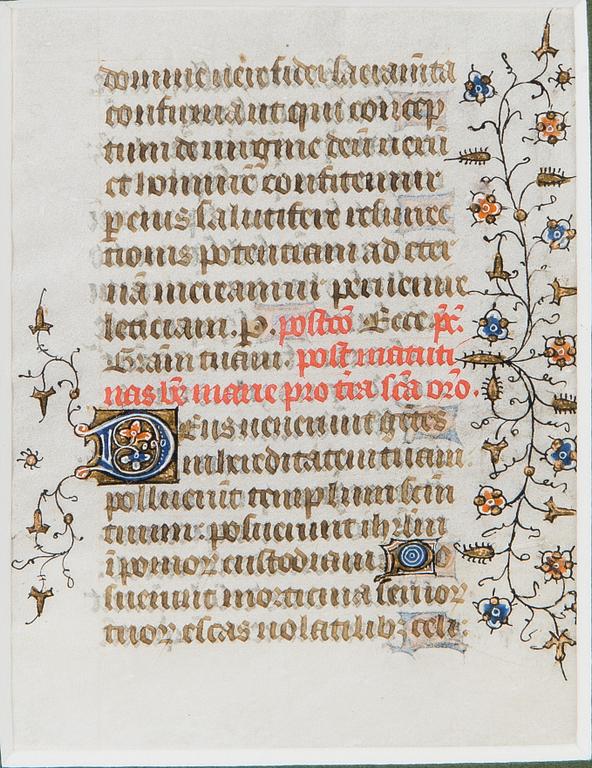 domine vere fidei sacram̄ta
confirmāut qui concep
tum de uirgine deū uerū
et hominē confitemur
per eius salutifere resurrec
tionis potentiam ad eter
nā mereamur peruenire
leticiam. p. postcō Ecce
Grām tuam. post matuti
nas bē marie pro tra scā orō.
Deus uenerunt gētes
in hereditatem tuam
polluerūt templum scm̄
tuum: posuerunt ihrlm̄
ī pomor custodiam. Po
suerunt morticina seruor
tuor escas uolatilibꝫ celi: